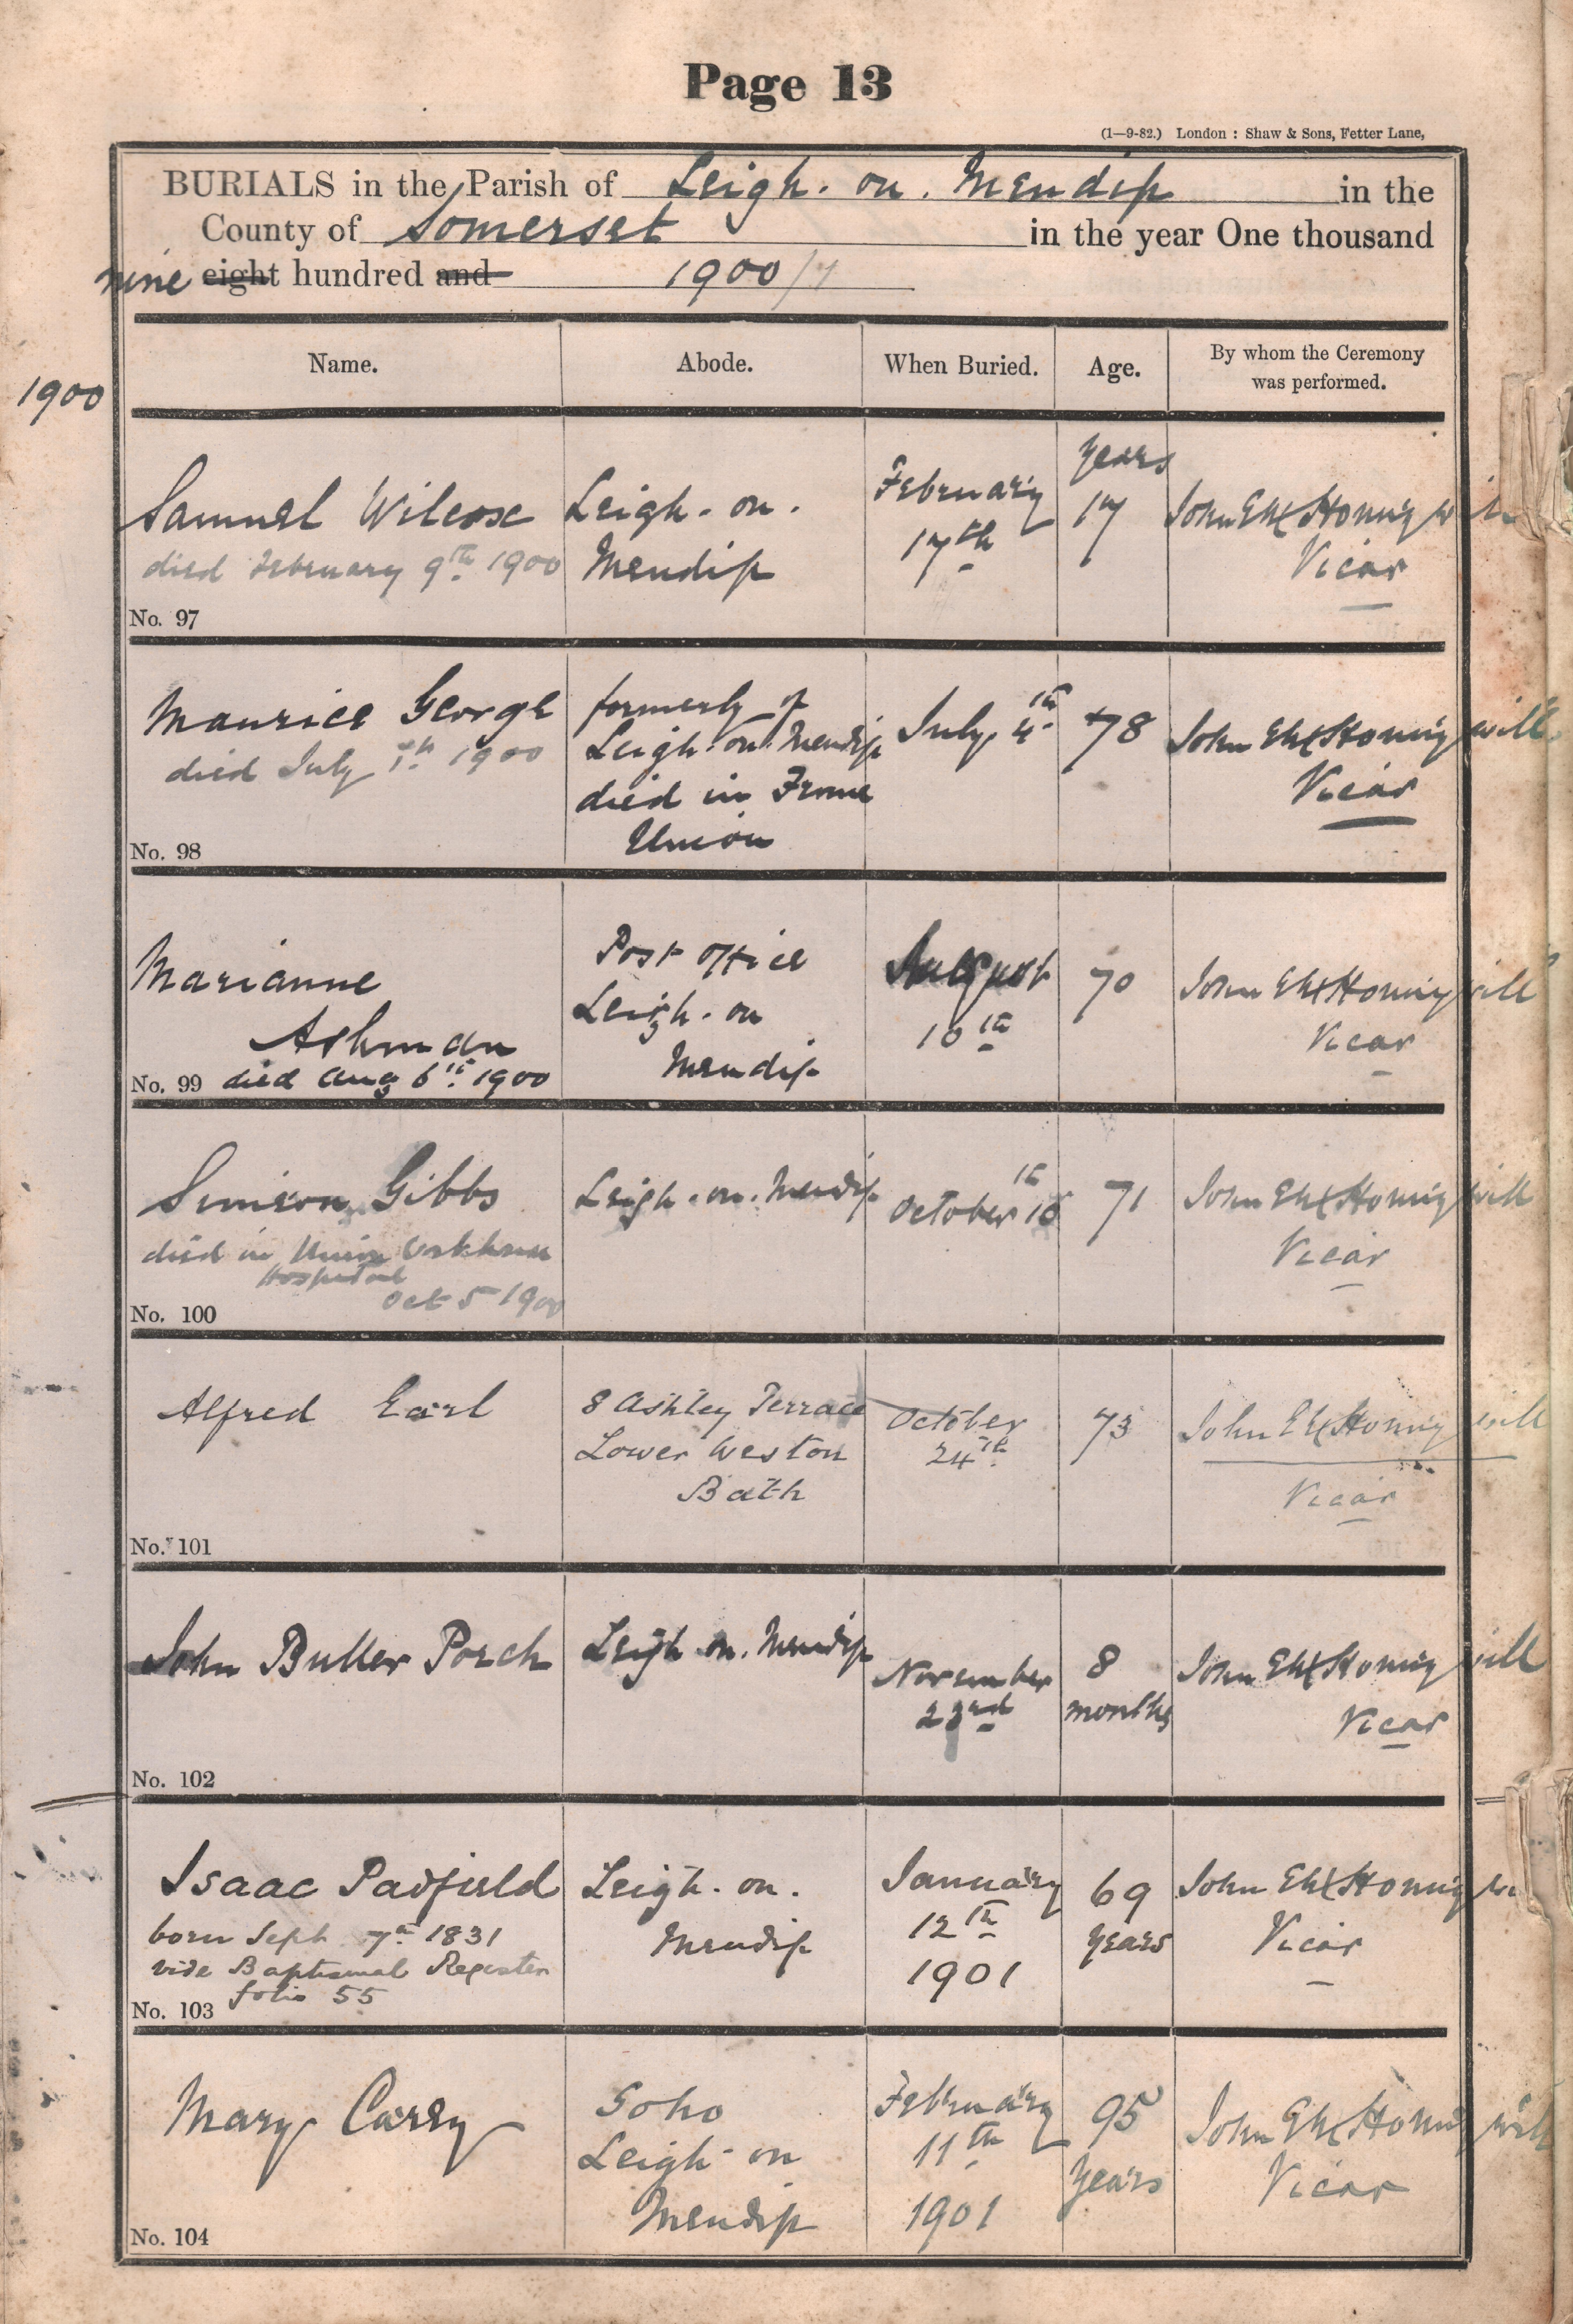 Page 13
(1—9-82.) London : Shaw & Sons, Fetter Lane,
BURIALS in the Parish of Leigh. on. Mendip in the
County of Somerset in the year One thousand
nine eight hundred and 1900/1
Name. Abode. When Buried. Age. By whom the Ceremony was performed.
1900
Samuel Wilcox
died February 9th 1900
No. 97
Leigh. on.
Mendip
February
17th
years
17
John Vicar
Maurice George
died July 1th 1900
No. 98
formerly of
Leigh. on. Mendip
died in Frome
Union
July. 4th
78
John Vicar
Marianne
Ashman
No. 99 died Aug 6th. 1900
Post office
Leigh. on
Mendip
August
10th
70
John Vicar
Simeon Gibbs
died in Union Workhouse
Hospital
Oct 5 1900
No. 100
Leigh. on. Mendip
October 10th
71
John Vicar
Alfred Earl
No. 101
8 Ashley Terrace
Lower Weston
Bath
October
24th
73
John Vicar
John Buller Porch
No. 102
Leigh on. Mendip
November
23rd
8
months
John Vicar
Isaac Padfield
born Sept 7th 1831
vide Baptismal Register
folio 55
No. 103
Leigh. on.
Mendip
January
12th
1901
69
years
John Vicar
Mary Carey
No. 104
Soho
Leigh - on
Mendip
February
11th
1901
95
years
John Vicar